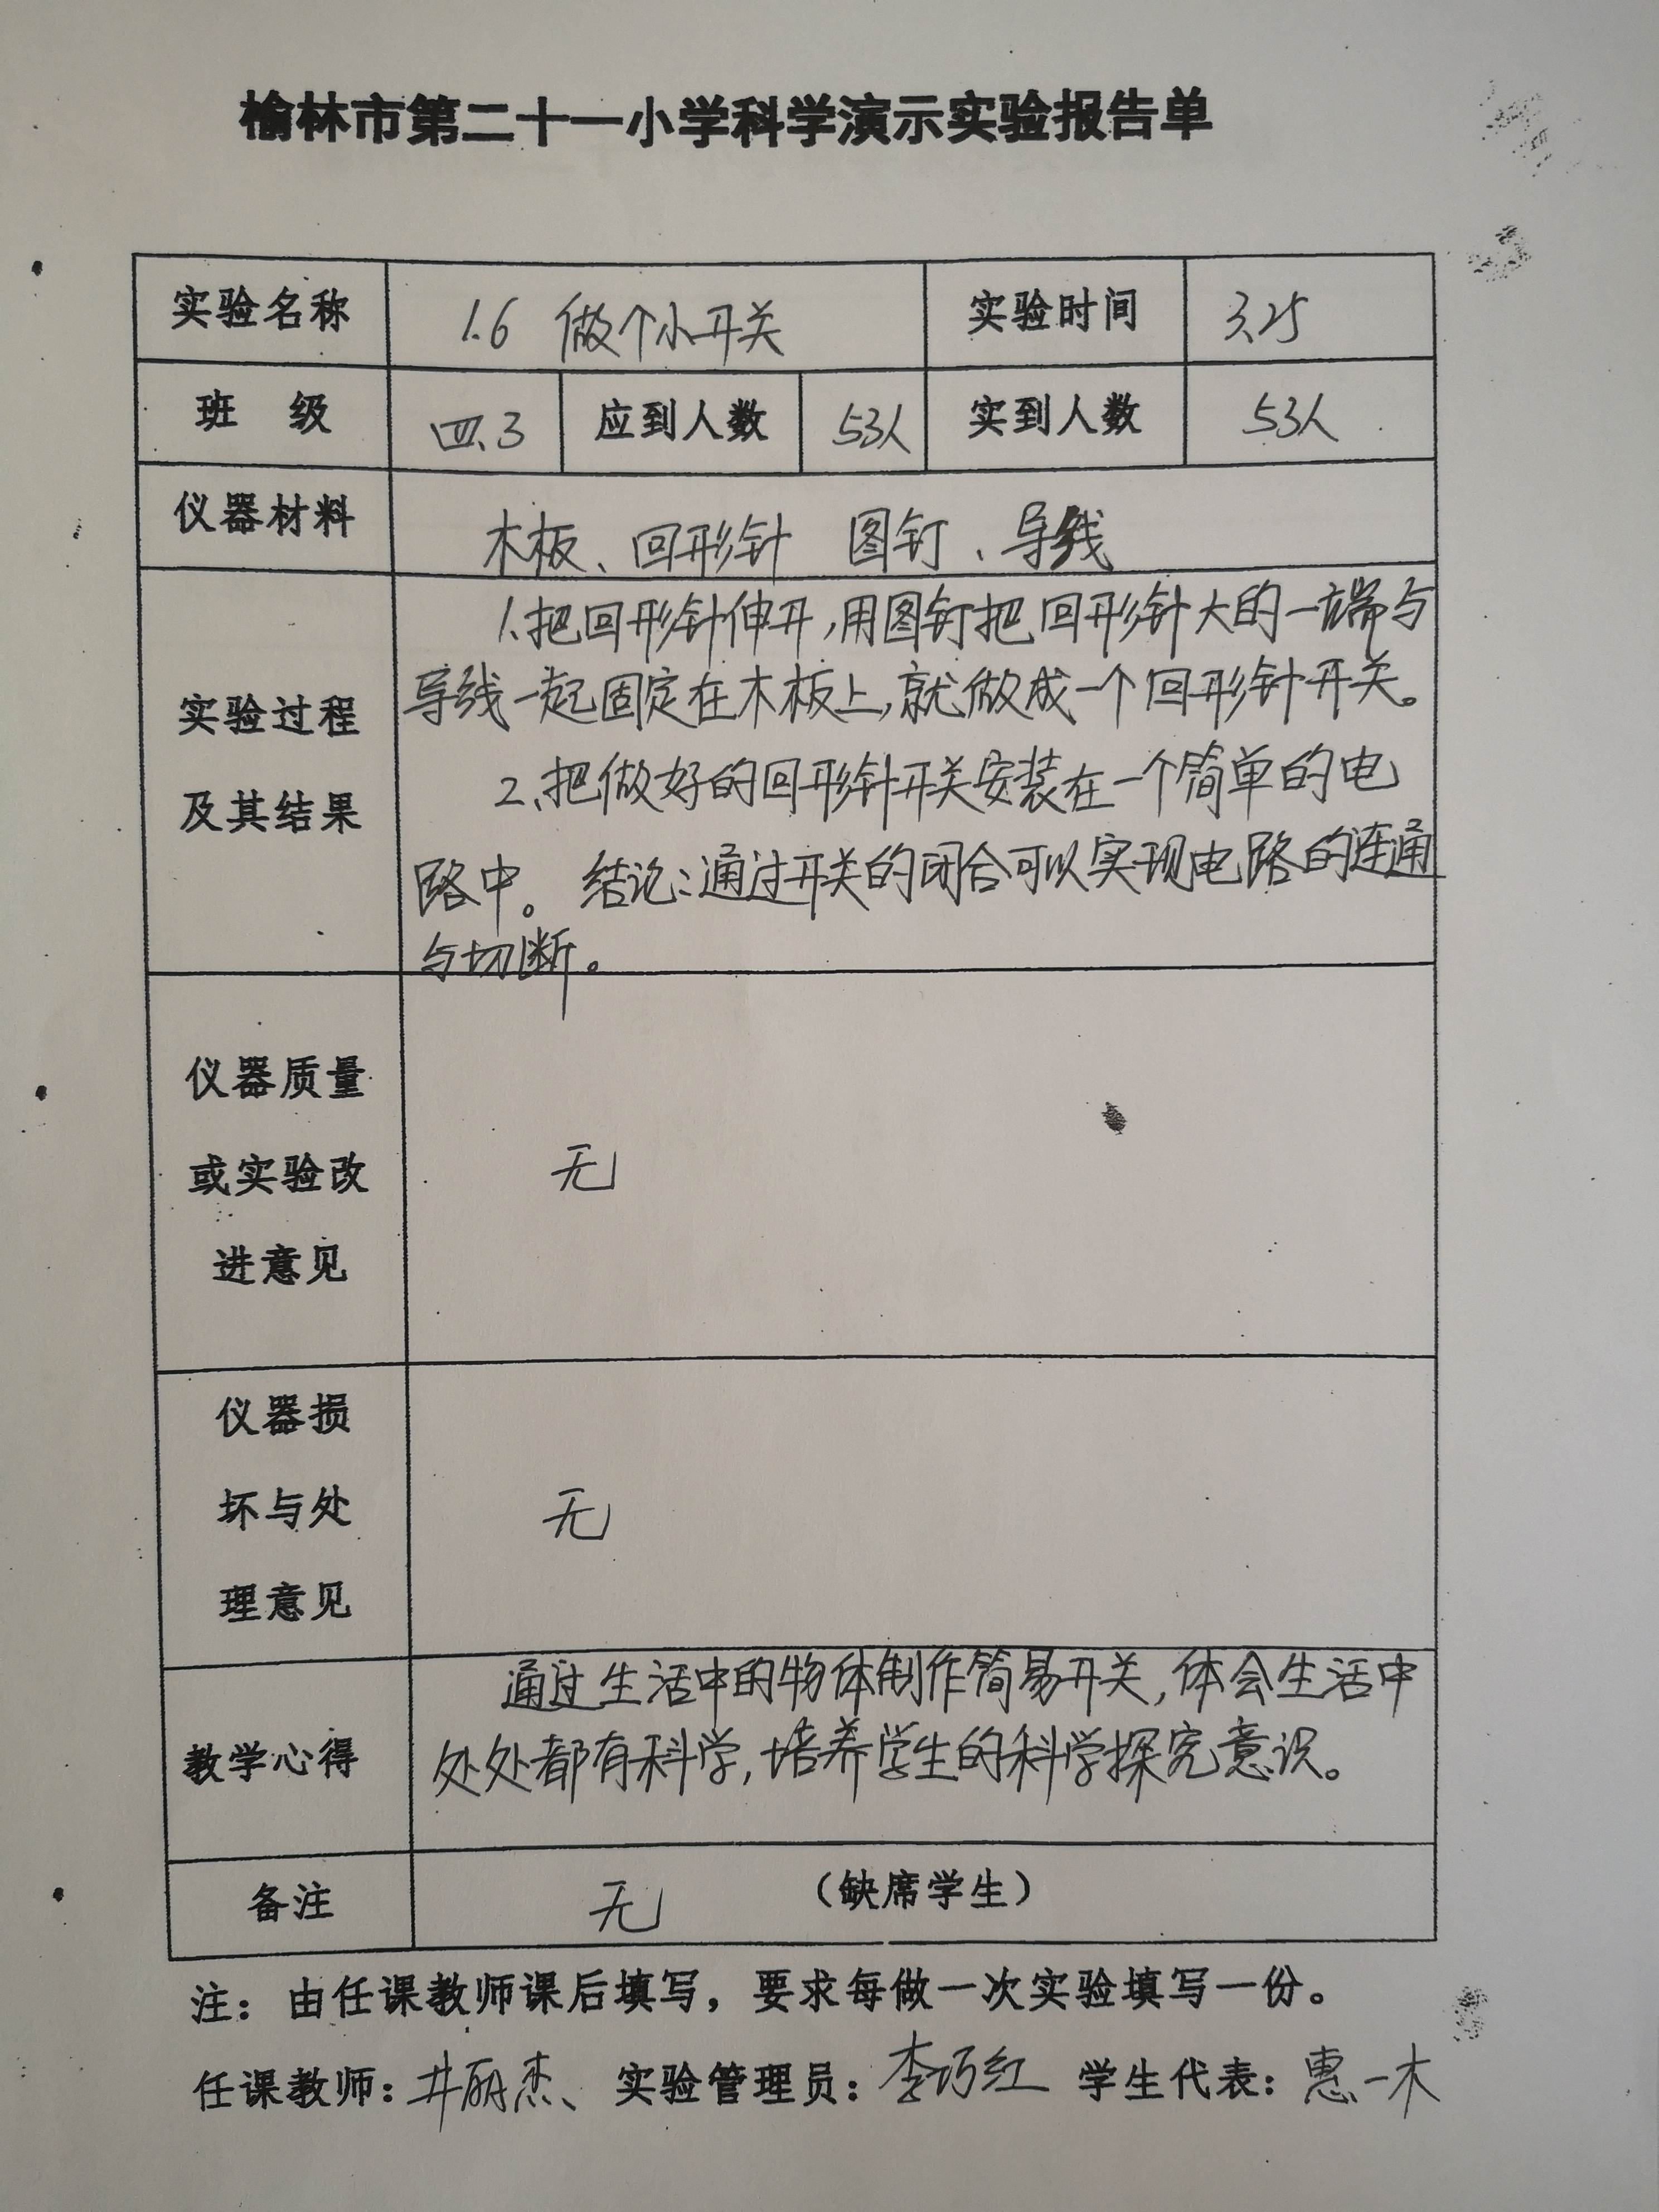 榆林市第二十一小学科学演示实验报告单
实验名称 1.6 做个小开关 实验时间 3.25
班 级 四.3 应到人数 53人 实到人数 53人
仪器材料 木板、回形针 图钉、导线
实验过程
及其结果
1.把回形针伸开,用图钉把回形针大的一端与
导线一起固定在木板上,就做成一个回形针开关。
2、把做好的回形针开关安装在一个简单的电
路中。 结论:通过开关的闭合可以实现电路的连通
与切断。
仪器质量
或实验改
进意见
无
仪器损
坏与处
理意见
无
教学心得
通过生活中的物体制作简易开关,体会生活中
处处都有科学,培养学生的科学探究意识。
备注 无 (缺席学生)
注:由任课教师课后填写,要求每做一次实验填写一份。
任课教师:井丽杰、 实验管理员:李巧红 学生代表:惠一木